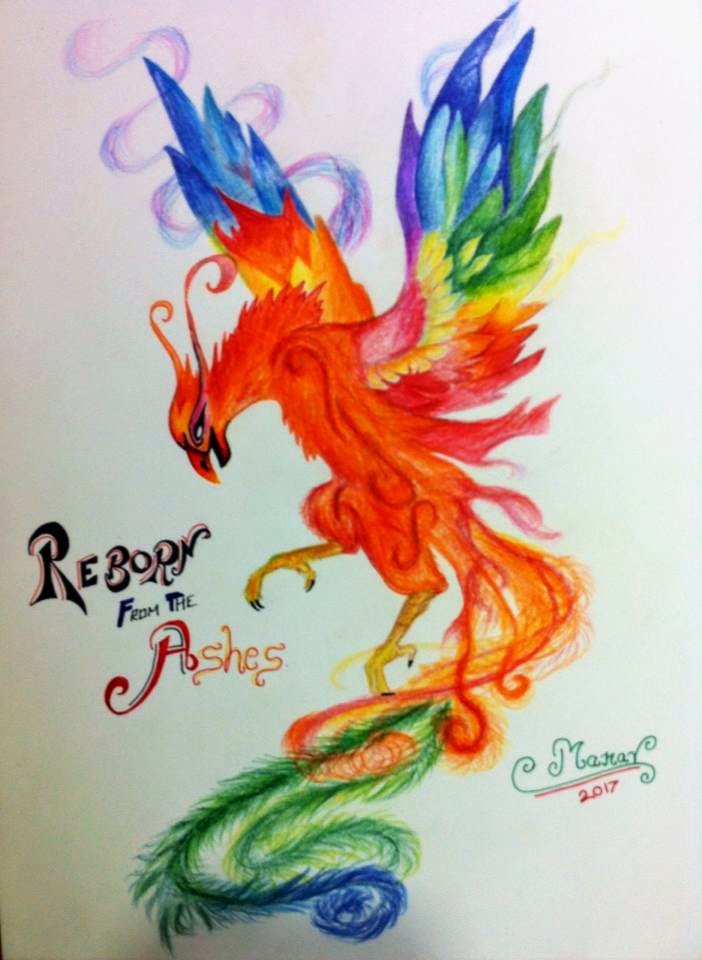 REBORN
FROM THE
Ashes
Manar
2017